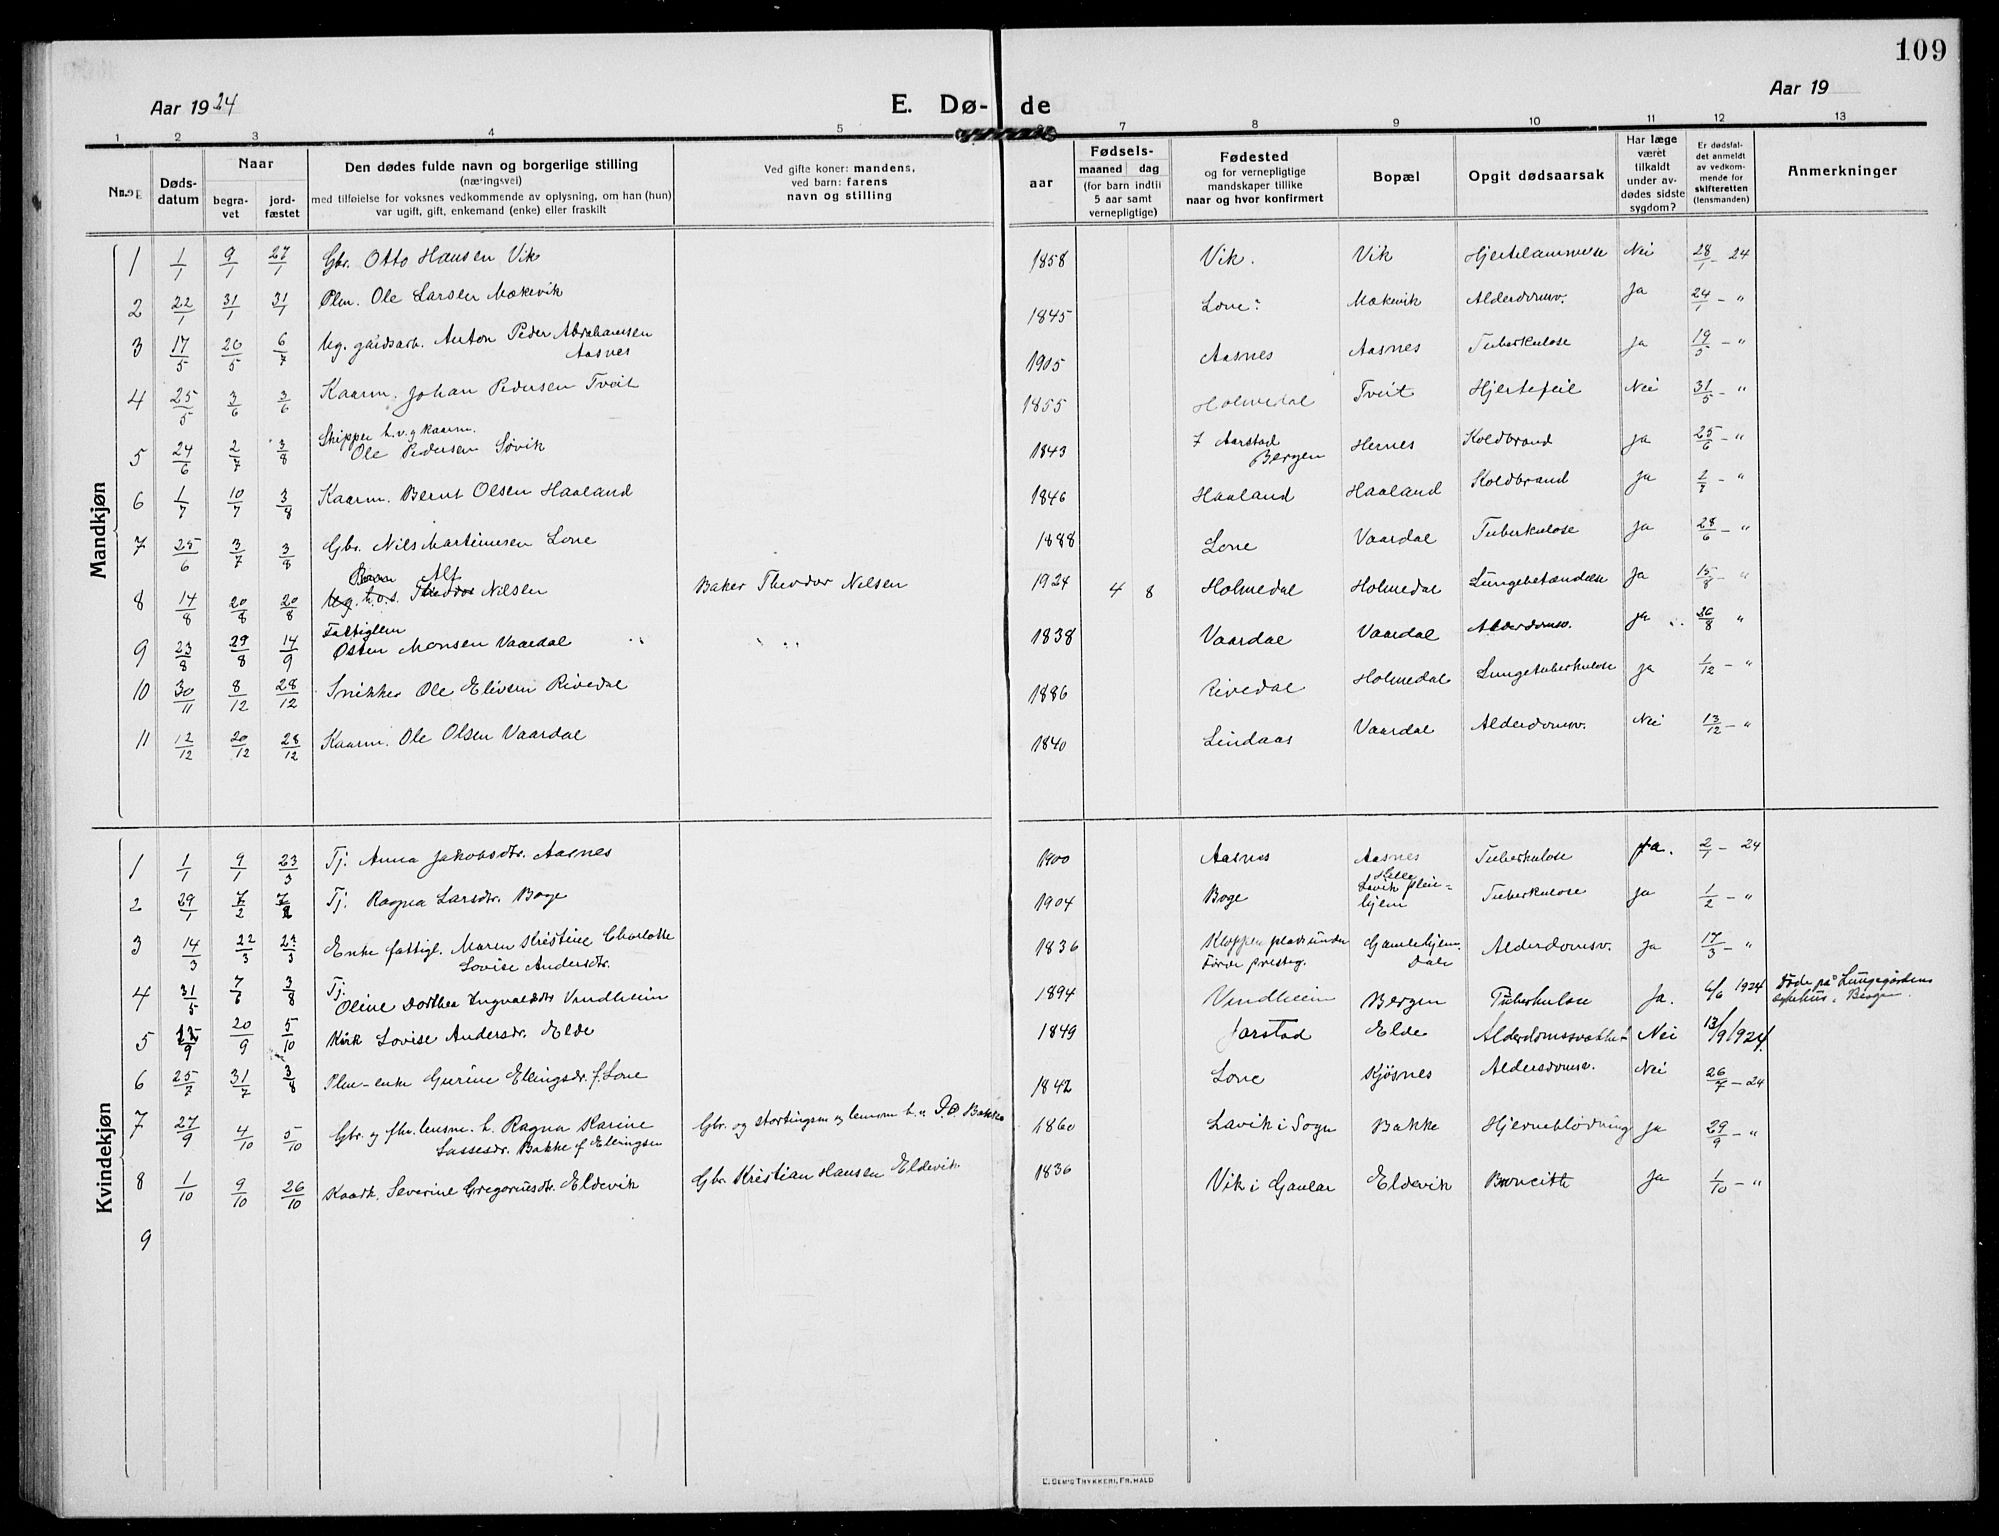 109
Aar 1924
E. Dø-de
Aar 19
1 2 3 4 5 7 8 9 10 11 12 13
Døds-datum
Naar
begra-vet
jord-fæstet
Den dødes fulde navn og borgerlige stilling
(næringsvei)
med tilføielse for voksnes vedkommende av oplysning, om han (hun)
var ugift, gift, enkemand (enke) eller fraskilt
Ved gifte koner: mandens,
ved barn: farens
navn og stilling
aar
Fødsels-
maaned dag
(for barn indtil
5 aar samt
vernepligtige)
Fødested
og for vernepligtige
mandskaper tillike
naar og hvor konfirmert
Bopæl
Opgit dødsaarsak
Har læge
været
tilkaldt
under av-
dødes sidste
sygdom?
Er dødsfal-
det anmeldt
av vedkom-
mende for
skifteretten
(lensmanden)
Anmerkninger
Mandkjøn
1 1/1 9/1 27/1 Gbr. Otto Hansen Vik 1858 Vik. Vik Hjertelammelse Nei 28/1 - 24
2 22/1 31/1 31/1 Plm. Ole Larsen Mækevik 1845 Lone: Mækevik Alderdomsv. Ja 24/1 - "
3 17/5 20/5 6/7 Ug. gaidsarb. Anton Peder Abrahamsen
Aasnes 1905 Aasnes Aasnes Tuberkulose Ja 19/5 - "
4 25/5 3/6 3/6 Kaarm. Johan Pedersen Tveit 1855 Holmedal Tveit Hjertefeil Nei 31/5 - "
5 24/6 2/7 3/8 Skipper h.v.g kaarm.
Ole Pedersen Søvik 1843 Aarstad
Bergen Hernes Koldbrand Ja 25/6 - "
6 1/7 10/7 3/8 Kaarm. Bernt Olsen Haaland 1846 Haaland Haaland Koldbrand Ja 2/7 - "
7 25/6 3/7 3/8 Gbr. Nils Martinusen Lone 1888 Lone Vaardal Tuberkulose Ja 28/6 - "
Barn Alf
8 14/8 20/8 20/8 Ug. h.o.s. Theodor Nilsen Baker Theodor Nilsen 1924 4 8 Holmedal Holmedal Lungebetændelse Ja 15/8 - "
9 23/8 29/8 14/9 Fattiglem
Østen Monsen Vaardal 1838 Vaardal Vaardal Alderdomsv. Ja 26/8 "
10 30/11 8/12 28/12 Snikker Ole Elivsen Rivedal 1886 Rivedal Holmedal Lungetuberkulose Ja 1/12 - "
11 12/12 20/12 28/12 Kaarm. Ole Olsen Vaardal 1840 Lindaas Vaardal Alderdomsv. Nei 13/12 - "
Kvindekjøn
1 1/1 9/1 23/3 Tj. Anna Jakobsdtr. Aasnes 1900 Aasnes Aasnes Tuberkulose Ja. 2/1 - 24
2 29/1 7/2 7/2 Tj. Ragna Larsdtr. Boge 1904 Boge Helle
Lavik pleie-
hjem Tuberkulose Ja 1/2 - "
3 14/3 22/3 23/3 Enke fattigl. Maren Kristine Charlotte
Lovise Andersdtr. 1836 Kloppen plads under
Førde presteg. Gamlehjem
Dale Alderdomsv. Ja 17/3 - "
4 31/5 7/6 3/8 Tj.
Oline Dorthea Ingvaldsdtr Vindheim 1894 Vindheim Bergen Tuberkulose Ja. 6/6 1924 Døde på Lungegårdens
sykehus i Bergen.
5 12/9 20/9 5/10 Kårk Lovise Andersdr. Elde 1849 Jarstad Elde Alderdomssvakhet Nei 13/9 1924.
6 25/7 31/7 3/8 Plm-enke Gurine Ellingsdr. f. Lone 1842 Lone Kjøsnes Aldersdomsv. Nei 26/7 - 24
7 27/9 4/10 5/10 Gbr. og fhv. lensm. h. Ragna Karine
Lassesdr. Bakke f Ellingsen Gbr. og stortingsm og lensm h. P.O. Bakke 1860 Lavik i Sogn Bakke Hjerneblødning Ja 29/9 - "
8 1/10 9/10 26/10 Kaark. Severine Gregoriusdtr. Eldevik Gbr Kristian Hansen Eldevik 1836 Vik i Gaular Eldevik Broncitt Ja 1/10 - "
9
E. SEM'S TRYKKERI, FR.HALD